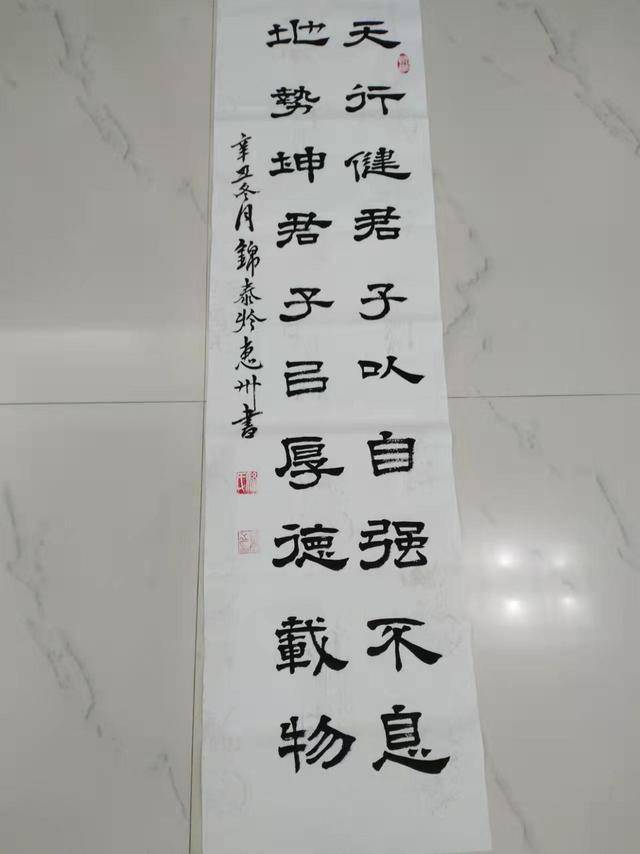 天行健君子以自强不息
地勢坤君子㠯厚德載物
辛丑冬月錦泰於惠州書